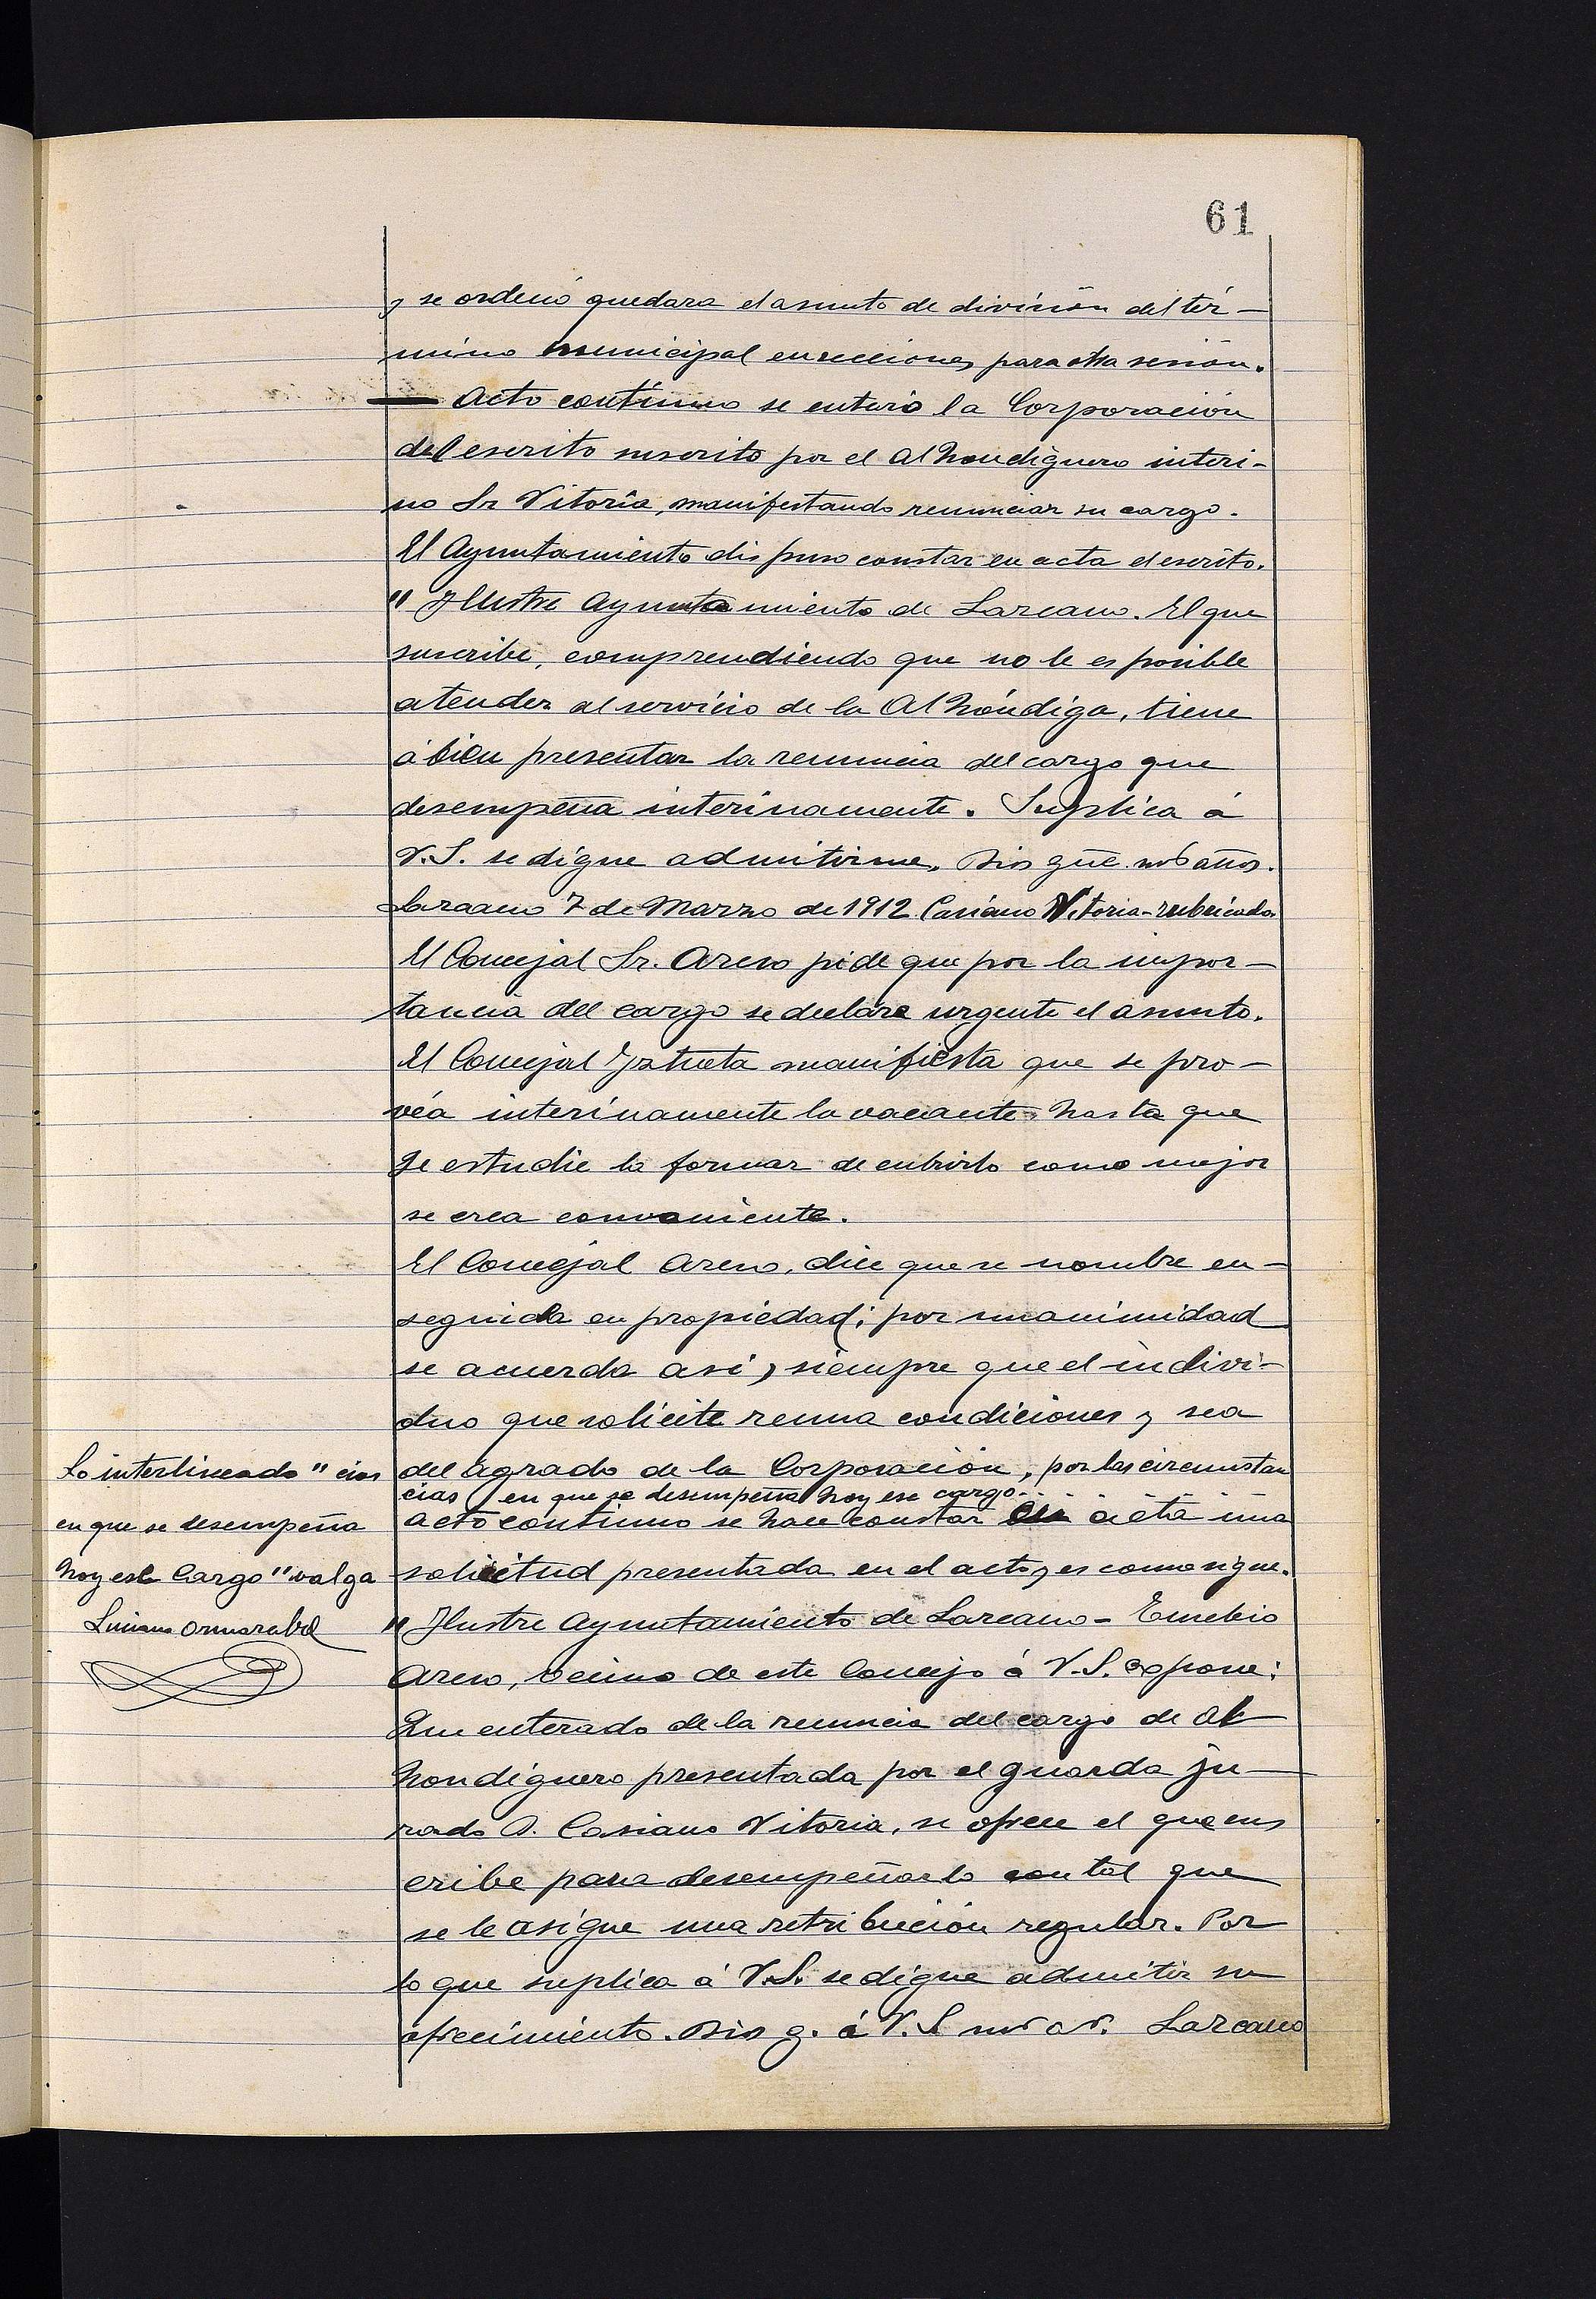 61
y se ordenó quedara el asunto de división del tér-
mino municipal en secciones para otra sesión.
Acto contínuo se enteró la Corporación
del escrito suscrito por el Alhondiguero interi-
no Sr Vitoria, manifestando renunciar su cargo.
El Ayuntamiento dispuso constar en acta el escrito.
"Ilustre Ayuntamiento de Lazcano. El que
suscribe, comprendiendo que no le es posible
atender al servicio de la Alhóndiga, tiene
á bien presentar la renuncia del cargo que
desempeña interinamente. Suplica á
V.S. se digne admitirme. Dios gûe ms años.
Lazcano 7 de Marzo de 1912. Casiano Vitoria-rubricado.
El Concejal Sr. Areso pide que por la impor-
tancia del cargo se declare urgente el asunto.
El Concejal Yztueta manifiesta que se pro-
véa interínamente la vacante hasta que
se estudie la formar de cubrirlo como mejor
se crea conveniente.
El Concejal Areso, dice que se nombre en-
seguida en propiedad; por unanimidad
se acuerda asi, siempre que el indivi-
duo que solicite reuna condiciones y sea
del agrado de la Corporación, por las circunstan
cias en que se desempeña hoy ese cargo.
acto contínuo se hace constar en acta una
solicitud presentada en el acto y es como sigue.
"Ilustre Ayuntamiento de Lazcano - Eusebio
Areso, vecino de este Concejo á V.S. expone:
Que enterado de la renuncia del cargo de Al-
hondiguero presentada por el guarda ju-
rado D. Casiano Vitoria, se ofrece el que sus
cribe para desempeñarlo con tal que
se le asigne una retribución regular. Por
lo que suplica á V.S. se digne admitir su
ofrecimiento. Dios g. á V.S ms as. Lazcano
Lo interlineado "cias
en que se desempeña
hoy ese Cargo" valga
Luciano Ormazabal